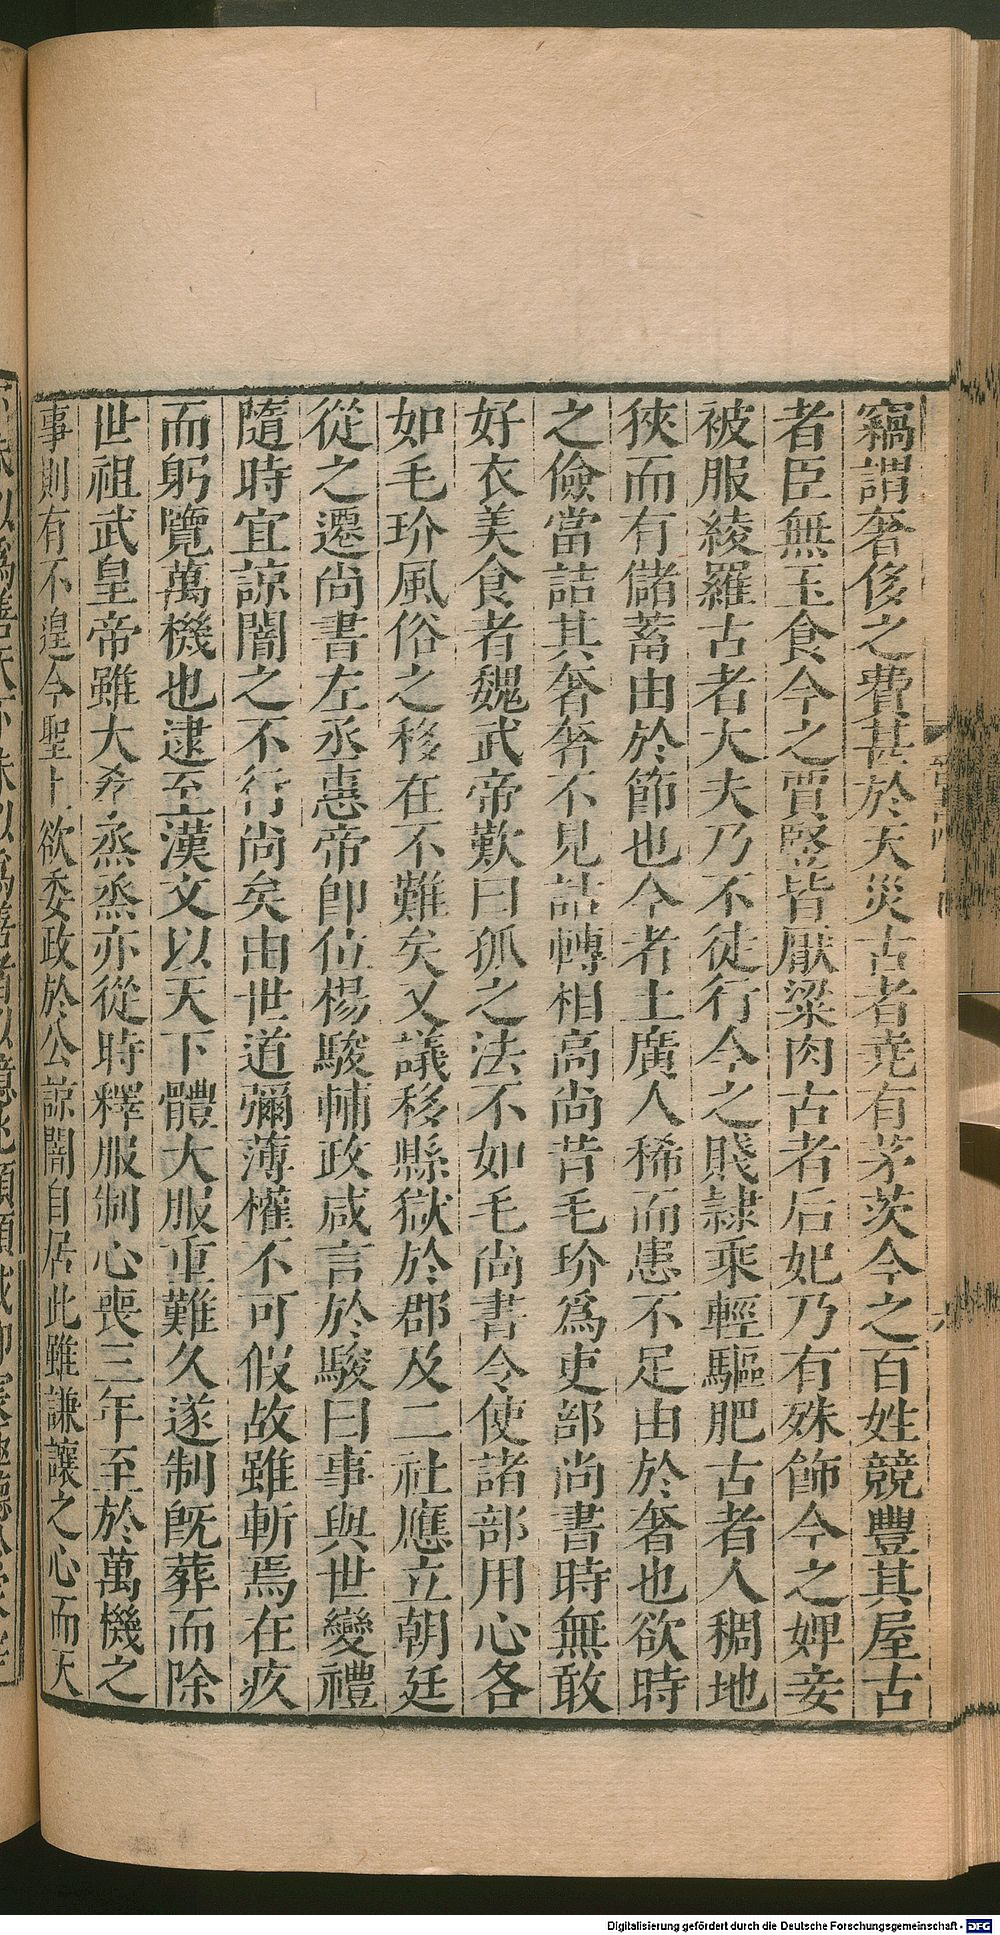 竊謂奢侈之費甚於天災古者堯有茅茨今之百姓競豐其屋古
者臣無玉食今之賈豎皆厭粱肉古者后妃乃有殊飾今之婢妾
被服綾羅古者大夫乃不徒行今之賤隸乘輕驅肥古者人稠地
狹而有儲蓄由於節也今者土廣人稀而患不足由於奢也欲時
之儉當詰其奢奢不見詰轉相高尚昔毛玠爲吏部尚書時無敢
好衣美食者魏武帝歎曰孤之法不如毛尚書令使諸部用心各
如毛玠風俗之移在不難矣又議移縣獄於郡及二社應立朝廷
從之遷尚書左丞惠帝卽位楊駿輔政咸言於駿曰事與世變禮
隨時宜諒闇之不行尚矣由世道彌薄權不可假故雖斬焉在疚
而躬覽萬機也逮至漢文以天下體大服重難久遂制旣葬而除
世祖武皇帝雖大孝烝烝亦從時釋服制心喪三年至於萬機之
事則有不遑今聖上欲委政於公諒闇自居此雖謙讓之心而天
Digitalisierung gefördert durch die Deutsche Forschungsgemeinschaft - DFG